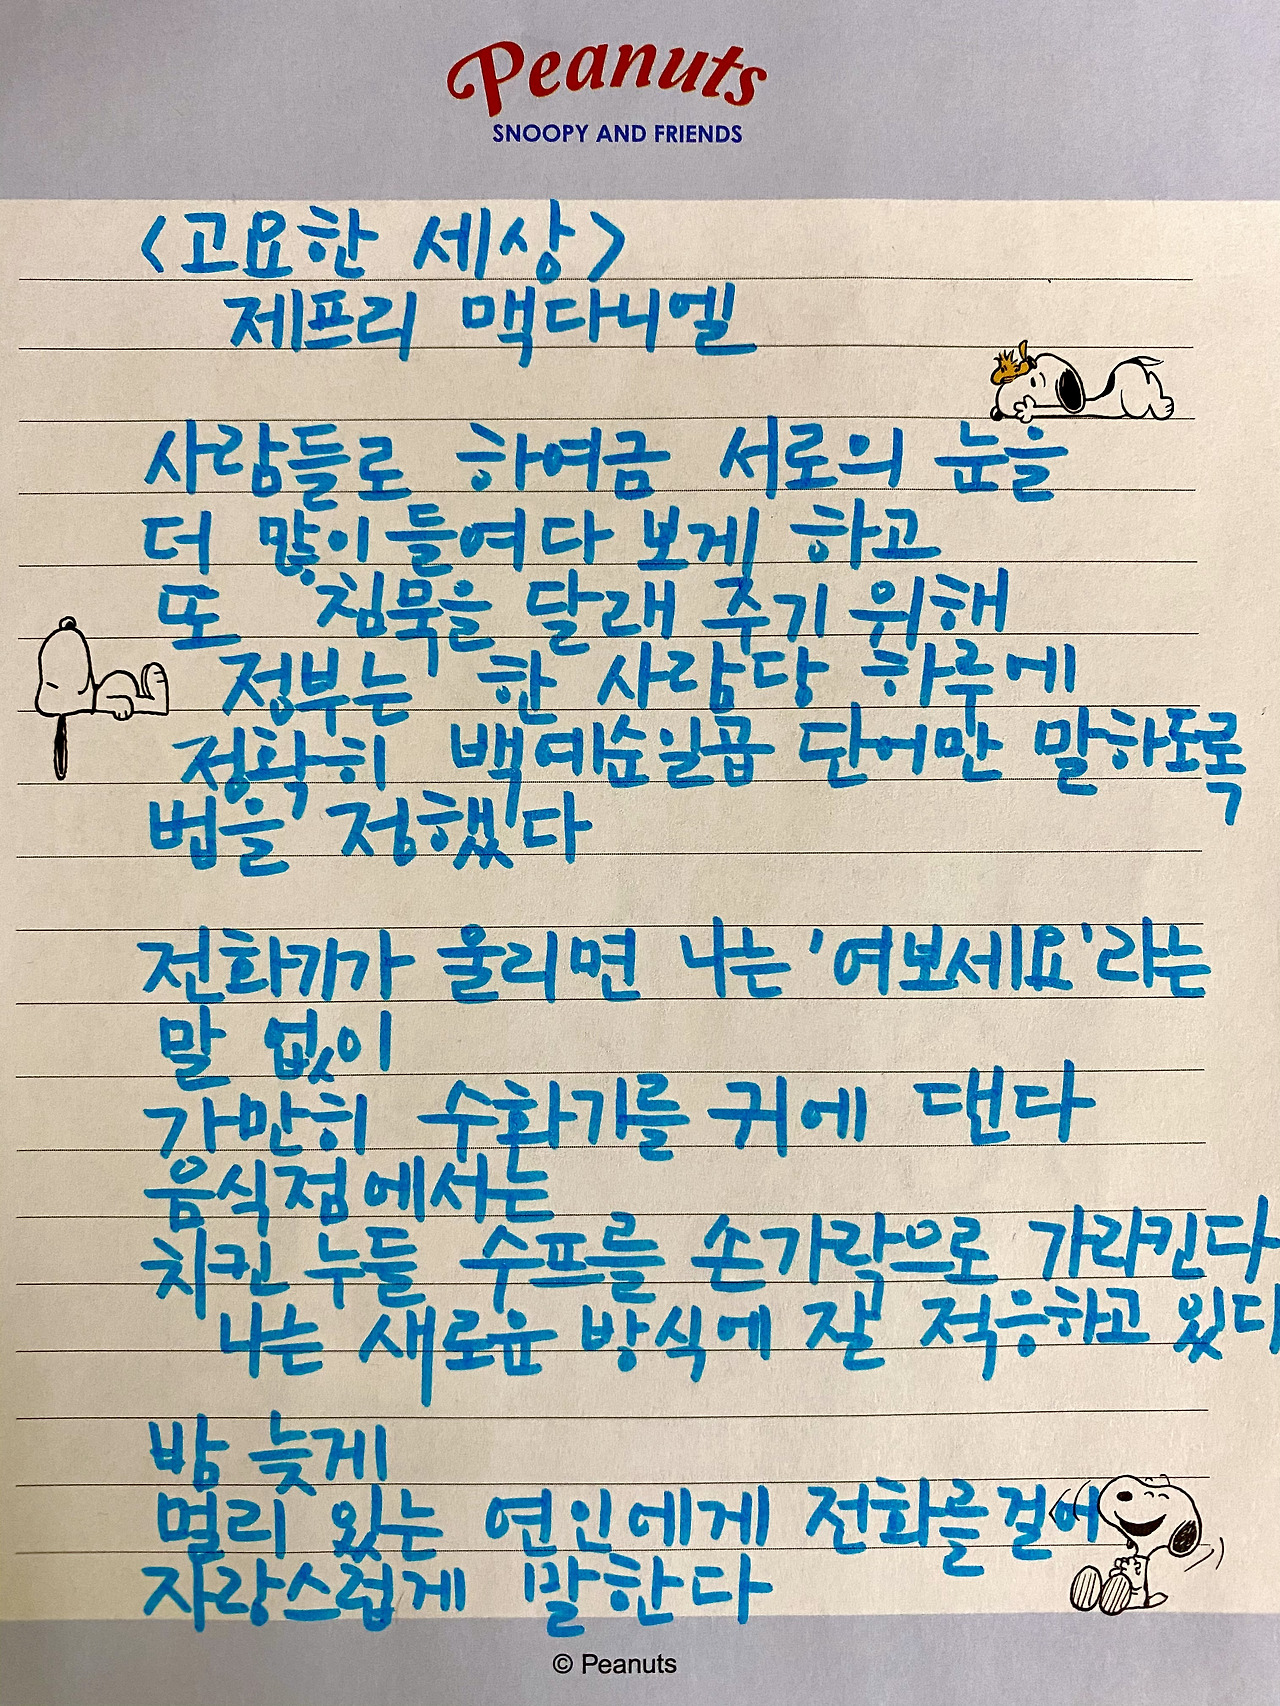 Peanuts
SNOOPY AND FRIENDS
<고요한 세상>
제프리 맥다니엘
사람들로 하여금 서로의 눈을
더 많이 들여다 보게 하고
또 침묵을 달래 주기 위해
정부는 한 사람당 하루에
정확히 백예순일곱 단어만 말하도록
법을 정했다
전화기가 울리면 나는 '여보세요'라는
말 없이
가만히 수화기를 귀에 댄다
음식점에서는
치킨 누들 수프를 손가락으로 가리킨다
나는 새로운 방식에 잘 적응하고 있다
밤 늦게
멀리 있는 연인에게 전화를 걸어
자랑스럽게 말한다
© Peanuts